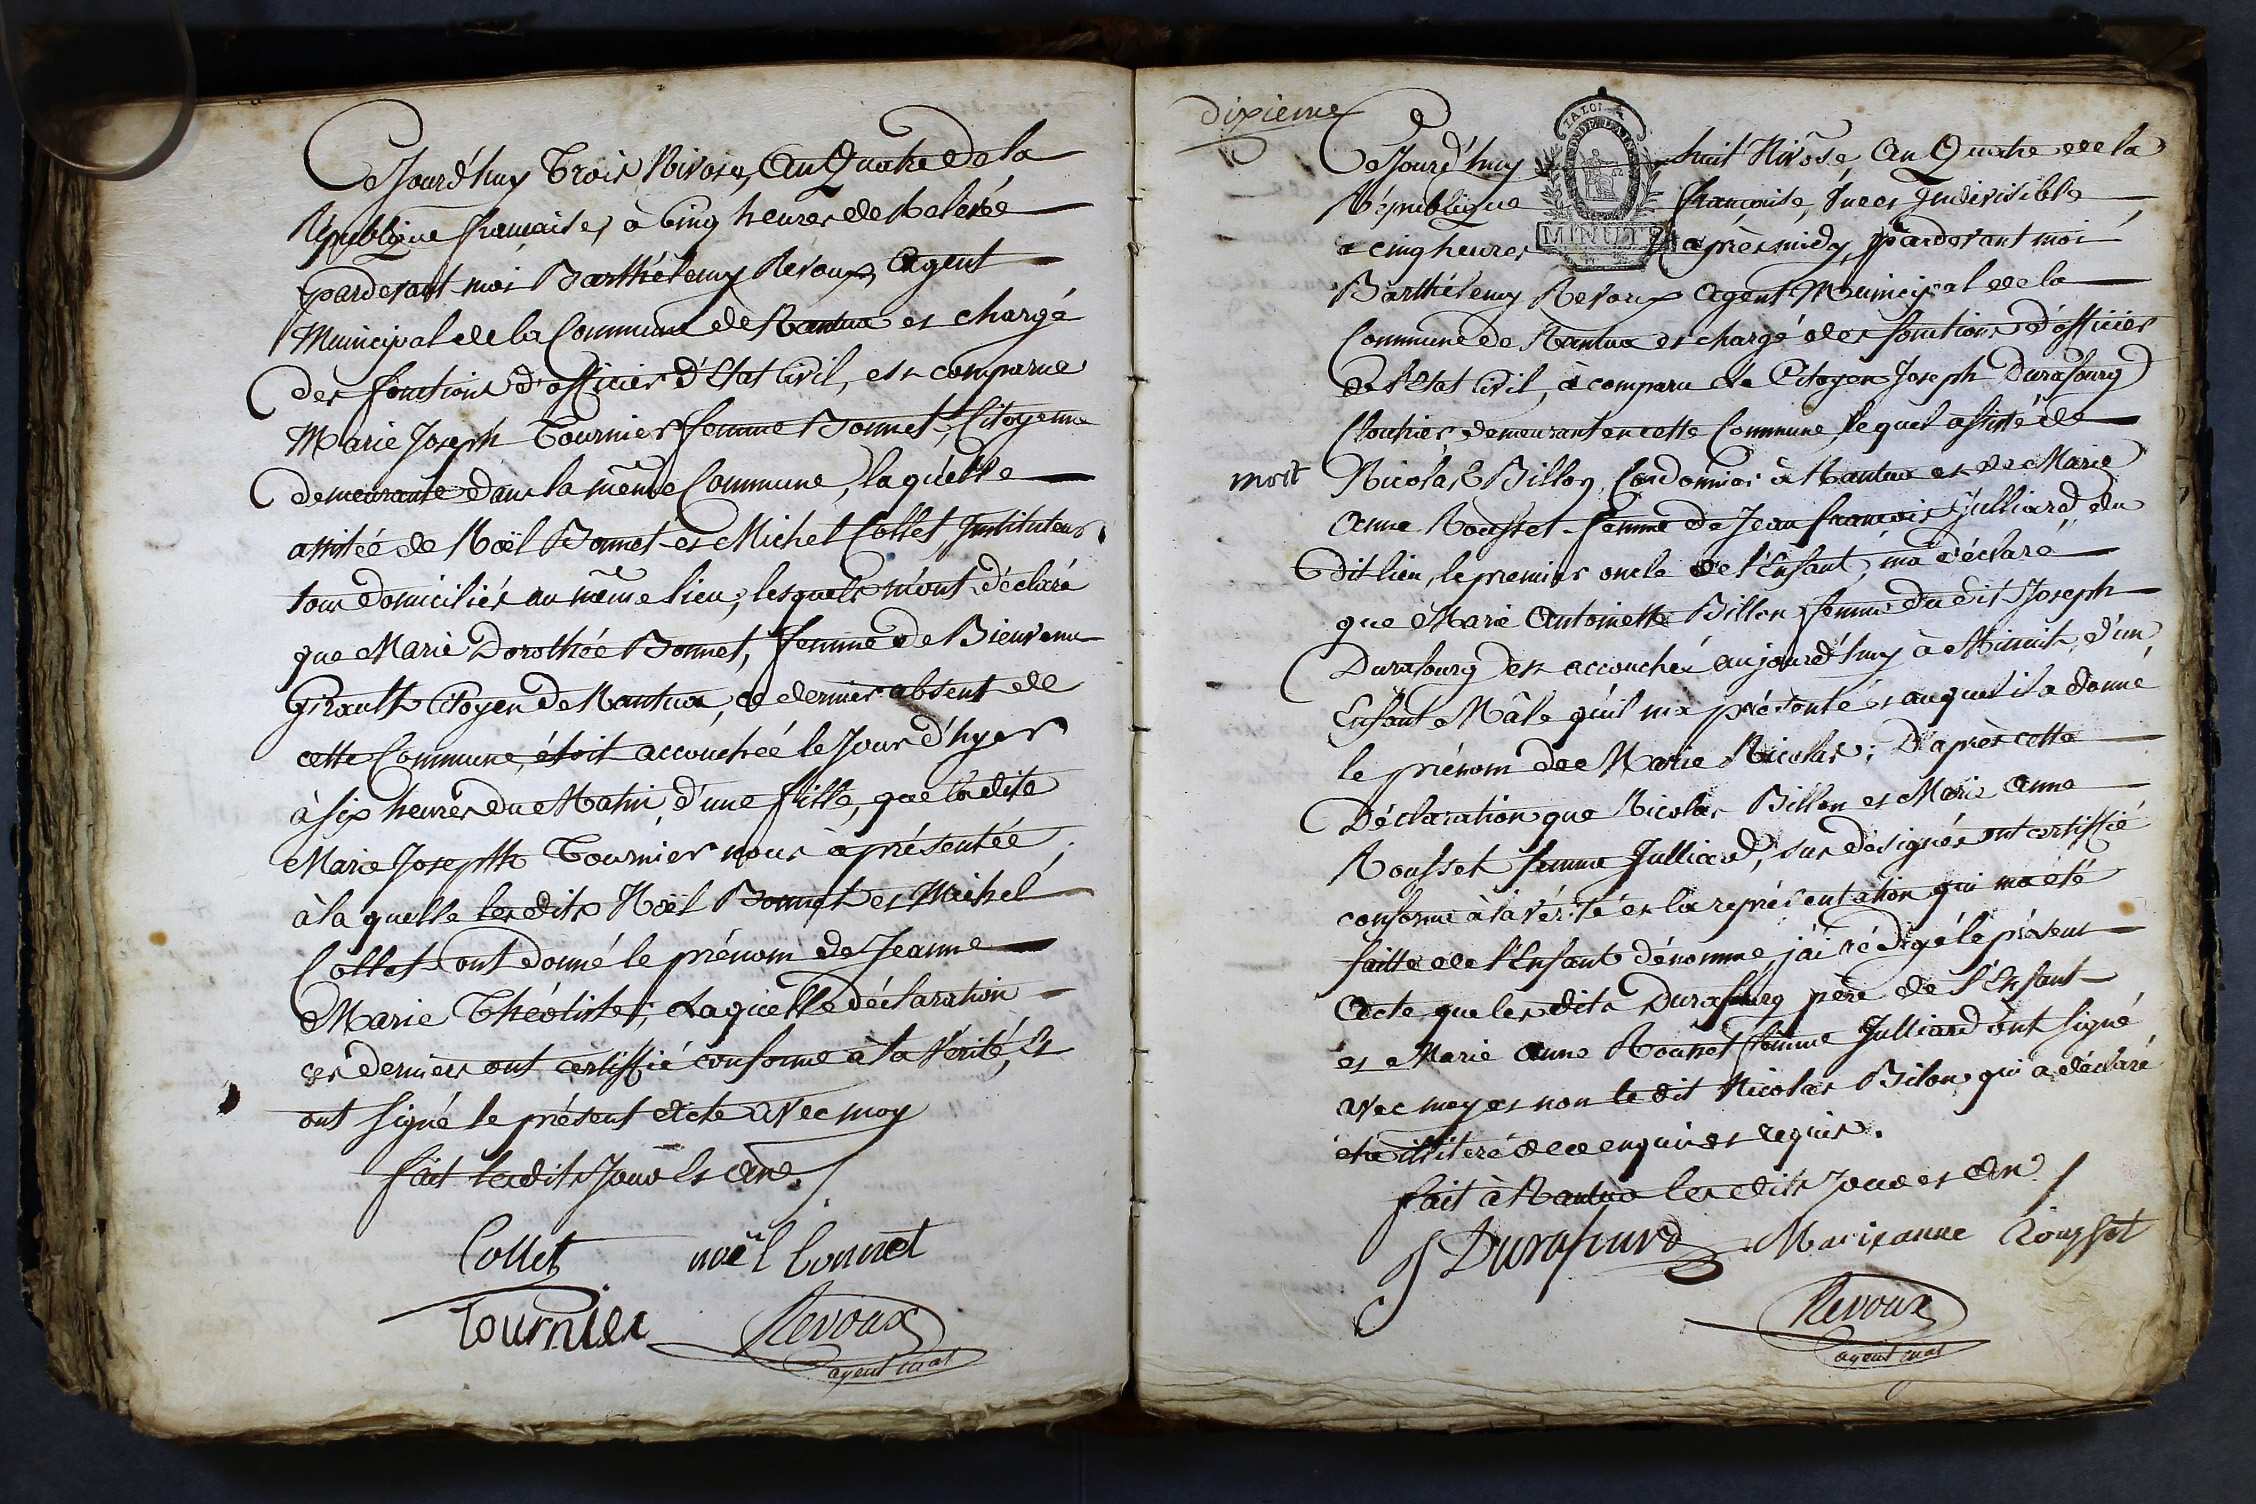 Cejourd'huy Trois Nivose, An Quatre de la
République française, à Cinq heures de Relevée
pardevant moi Barthélemy Revoux, Agent
Municipal de la Commune de Nantua et chargé
des fonctions d'officier d'Etat Civil, est comparue
Marie Joseph Tournier femme Bonnet, Citoyenne
demeurante dans la même Commune, laquelle
assistée de Noël Bonnet et Michel Collet, Instituteur,
tous domiciliés au même lieu, lesquels m'ont déclaré
que Marie Dorothée Bonnet, femme de Bienvenu
Girault Citoyen de Nantua, ce dernier absent de
cette Commune, étoit accouchéé le Jour d'hyer
à six heures du Matin, d'une fille, que ladite
Marie Josepth Tournier nous à présentée,
à la quelle lesdits Noël Bonnet et Michel
Collet ont donné le prénom de Jeanne
Marie Théotiste; Laquelle déclaration
ces derniers ont certiffié conforme à la Vérité, Et
ont signé le présent Acte avec moy
fait lesdits Jour Et an.
Collet noël bonnet
tournier Revoux
agent mal
dixieme
LA LOI
MINUTE
Cejourd'huy huit Nivôse, An Quatre de la
République française, Une et Indivisible
à cinq heures après midy, Pardevant moi
Barthélemy Revoux Agent Municipal de la
Commune de Nantua et chargé des fonctions d'officier
de l'Etat Civil, à comparu le Citoyen Joseph Durafourg
Cloutier demeurant en cette Commune, lequel assisté de
mort
Nicolas Billon, Cordonnier à Nantua et de Marie
Anne Rousset femme de Jean françois Julliard du
dit lieu, le premier oncle de l'Enfant, m'a déclaré
que Marie Antoinette Billon femme du dit Joseph
Durafourg est accouchée aujourd'huy à Minuit, d'un
Enfant Mâle qu'il m'a présenté et auquel il a donné
le prénom de Marie Nicolas; D'après cette
Déclaration que Nicolas Billon et Marie Anne
Rousset femme Julliard, sus désignés ont certiffié
conforme à la vérité et la représentation qui m'a été
faitte de l'Enfant dénommé, j'ai rédigé le présent
Acte que les dits Durafourg père de l'Enfant
et Marie Anne Rousset femme Julliard ont signé
avec moy et non le dit Nicolas Bilon qui a déclaré
être illiteré de ce enquis et requis.
fait à Nantua les dits Jour et An
J Durafourd Marianne Roussot
Revoux
agent mal